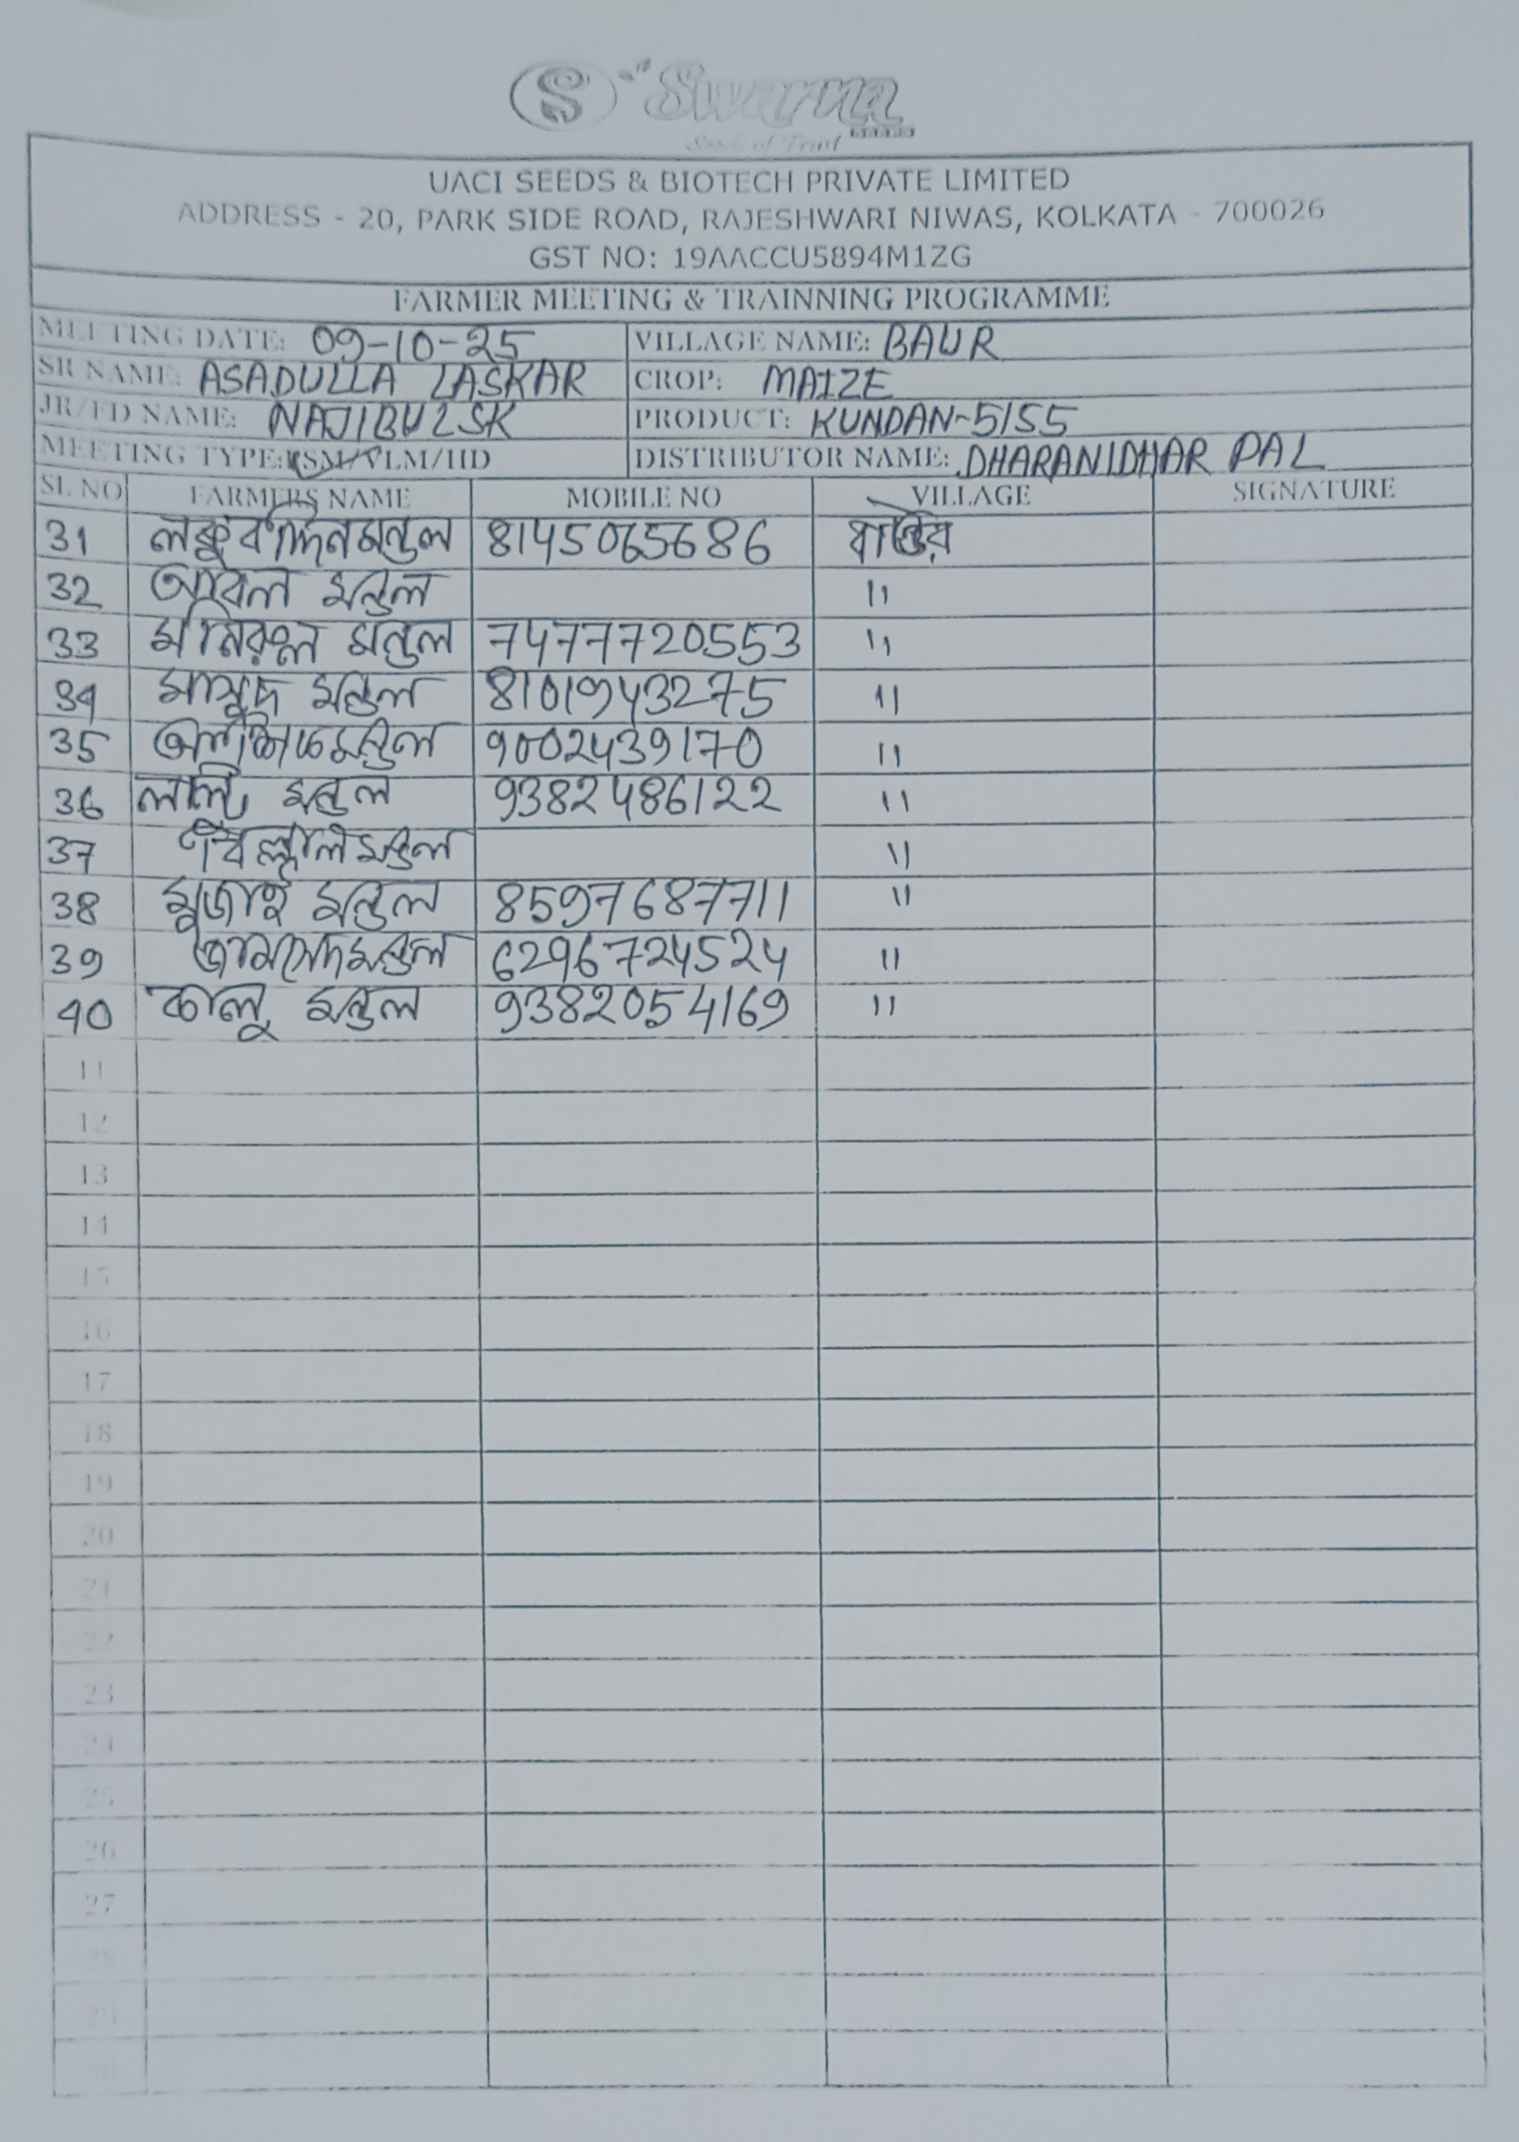 S Swarna
SEEDS
Seeds of Trust
UACI SEEDS & BIOTECH PRIVATE LIMITED
ADDRESS - 20, PARK SIDE ROAD, RAJESHWARI NIWAS, KOLKATA - 700026
GST NO: 19AACCU5894M1ZG
FARMER MEETING & TRAINNING PROGRAMME
MEETING DATE: 09-10-25 VILLAGE NAME: BAUR
SR NAME: ASADULLA LASKAR CROP: MAIZE
JR/FD NAME: NAJIBUL SK PRODUCT: KUNDAN-5155
MEETING TYPE: SM/VLM/HD DISTRIBUTOR NAME: DHARANIDHAR PAL
SL NO FARMERS NAME MOBILE NO VILLAGE SIGNATURE
31 মন্ডল 8145065686
32 মন্ডল "
33 মনিরুল মন্ডল 7477720553 "
34 মাসুদ মন্ডল 8101943275 "
35 মন্ডল 9002439170 "
36 লাল্টু মন্ডল 9382486122 "
37 মন্ডল "
38 মুজাই মন্ডল 8597687711 "
39 জামসেদ মন্ডল 6296724524 "
40 কালু মন্ডল 9382054169 "
11
12
13
14
15
16
17
18
19
20
21
22
23
24
25
26
27
28
29